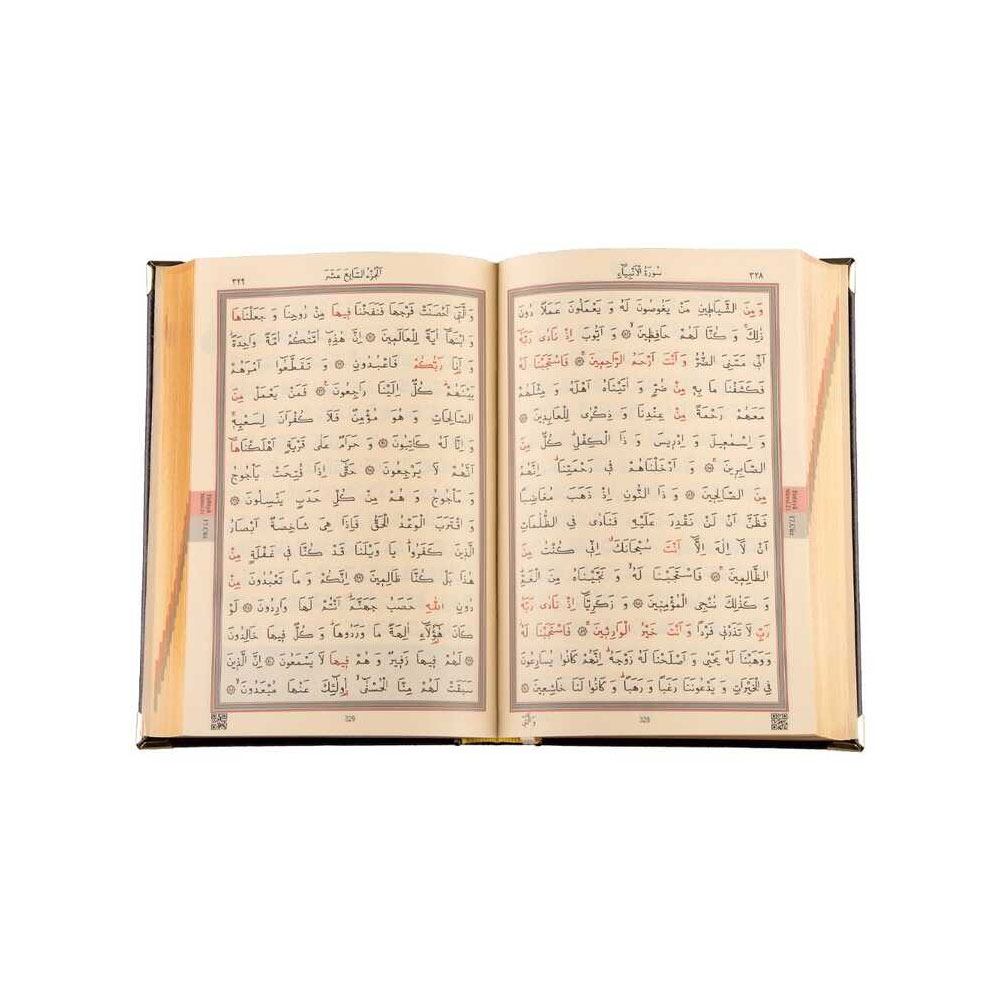 ٣٢٨
سُورَةُ الْاَنْبِيَاءِ
وَمِنَ الشَّيَاطِينِ مَنْ يَغُوصُونَ لَهُ وَ يَعْمَلُونَ عَمَلًا دُونَ
ذٰلِكَ وَ كُنَّا لَهُمْ حَافِظِينَ وَ اَيُّوبَ اِذْ نَادٰى رَبَّهُ
اَنّٖى مَسَّنِيَ الضُّرُّ وَ اَنْتَ اَرْحَمُ الرَّاحِمِينَ فَاسْتَجَبْنَا لَهُ
فَكَشَفْنَا مَا بِهِ مِنْ ضُرٍّ وَ اٰتَيْنَاهُ اَهْلَهُ وَ مِثْلَهُمْ
مَعَهُمْ رَحْمَةً مِنْ عِنْدِنَا وَ ذِكْرٰى لِلْعَابِدِينَ
وَ اِسْمٰعِيلَ وَ اِدْرِيسَ وَ ذَا الْكِفْلِ كُلٌّ مِنَ
الصَّابِرِينَ وَ اَدْخَلْنَاهُمْ فِى رَحْمَتِنَا اِنَّهُمْ
مِنَ الصَّالِحِينَ وَ ذَا النُّونِ اِذْ ذَهَبَ مُغَاضِبًا
فَظَنَّ اَنْ لَنْ نَقْدِرَ عَلَيْهِ فَنَادٰى فِى الظُّلُمَاتِ
اَنْ لَا اِلٰهَ اِلَّا اَنْتَ سُبْحَانَكَ اِنّٖى كُنْتُ مِنَ
الظَّالِمِينَ فَاسْتَجَبْنَا لَهُ وَ نَجَّيْنَاهُ مِنَ الْغَمِّ
وَ كَذٰلِكَ نُنْجِى الْمُؤْمِنِينَ وَ زَكَرِيَّا اِذْ نَادٰى رَبَّهُ
رَبِّ لَا تَذَرْنِى فَرْدًا وَ اَنْتَ خَيْرُ الْوَارِثِينَ فَاسْتَجَبْنَا لَهُ
وَ وَهَبْنَا لَهُ يَحْيٰى وَ اَصْلَحْنَا لَهُ زَوْجَهُ اِنَّهُمْ كَانُوا يُسَارِعُونَ
فِى الْخَيْرَاتِ وَ يَدْعُونَنَا رَغَبًا وَ رَهَبًا وَ كَانُوا لَنَا خَاشِعِينَ
328
وَالَّتِى
اَلْجُزْءُ السَّابِعَ عَشَرَ
٣٢٩
وَ الَّتِى اَحْصَنَتْ فَرْجَهَا فَنَفَخْنَا فِيهَا مِنْ رُوحِنَا وَ جَعَلْنَاهَا
وَ ابْنَهَا اٰيَةً لِلْعَالَمِينَ اِنَّ هٰذِهِ اُمَّتُكُمْ اُمَّةً وَاحِدَةً
وَ اَنَا رَبُّكُمْ فَاعْبُدُونِ وَ تَقَطَّعُوا اَمْرَهُمْ
بَيْنَهُمْ كُلٌّ اِلَيْنَا رَاجِعُونَ فَمَنْ يَعْمَلْ مِنَ
الصَّالِحَاتِ وَ هُوَ مُؤْمِنٌ فَلَا كُفْرَانَ لِسَعْيِهِ
وَ اِنَّا لَهُ كَاتِبُونَ وَ حَرَامٌ عَلٰى قَرْيَةٍ اَهْلَكْنَاهَا
اَنَّهُمْ لَا يَرْجِعُونَ حَتّٰى اِذَا فُتِحَتْ يَأْجُوجُ
وَ مَأْجُوجُ وَ هُمْ مِنْ كُلِّ حَدَبٍ يَنْسِلُونَ
وَ اقْتَرَبَ الْوَعْدُ الْحَقُّ فَاِذَا هِىَ شَاخِصَةٌ اَبْصَارُ
الَّذِينَ كَفَرُوا يَا وَيْلَنَا قَدْ كُنَّا فِى غَفْلَةٍ مِنْ
هٰذَا بَلْ كُنَّا ظَالِمِينَ اِنَّكُمْ وَ مَا تَعْبُدُونَ مِنْ
دُونِ اللّٰهِ حَصَبُ جَهَنَّمَ اَنْتُمْ لَهَا وَارِدُونَ لَوْ
كَانَ هٰٓؤُلَاءِ اٰلِهَةً مَا وَرَدُوهَا وَ كُلٌّ فِيهَا خَالِدُونَ
لَهُمْ فِيهَا زَفِيرٌ وَ هُمْ فِيهَا لَا يَسْمَعُونَ اِنَّ الَّذِينَ
سَبَقَتْ لَهُمْ مِنَّا الْحُسْنٰى اُولٰئِكَ عَنْهَا مُبْعَدُونَ
329